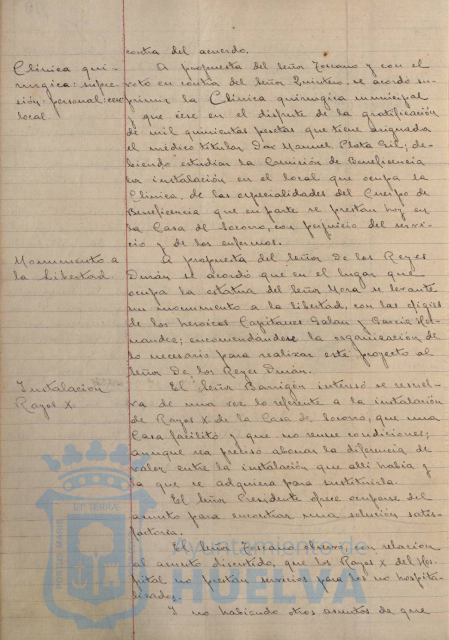 contra del acuerdo.
Clinica qui- A propuesta del Señor Toscano y con el
rurgica: supre- voto en contra del Señor Quintero, se acordó su-
sión: personal: primir la Clinica quirurgica municipal
local. y que cese en el disfrute de la gratificación
de mil quinientas pesetas que tiene asignada
el médico titular Don Manuel Plata Gil; de-
biendo estudiar la Comisión de Beneficencia
la instalación en el local que ocupa la
Clinica, de las especialidades del Cuerpo de
Beneficencia que en parte se prestan hoy en
la Casa de Socorro, con perjuicio del servi-
cio y de los enfermos.
Monumento a A propuesta del Señor De los Reyes
la Libertad. Durán se acordó que en el lugar que
ocupa la estatua del Señor Mora se levante
un monumento a la libertad, con las efigies
de los heroicos Capitanes Galan y Garcia Her-
nandez; encomendandose la organización de
lo necesario para realizar este proyecto al
Señor De los Reyes Durán.
Instalación El Señor Barrigón interesó se resuel-
Rayos X. va de una vez lo referente a la instalación
de Rayos X de la Casa de Socorro, que una
Casa facilitó y que no reune condiciones;
aunque sea preciso abonar la diferencia de
valor entre la instalación que alli habia y
la que se adquiera para sustituirla.
El Señor Presidente ofrece ocuparse del
asunto para encontrar una solución satis-
factoria.
El Señor Toscano observa con relación
al asunto discutido, que los Rayos X del Hos-
pital no prestan servicios para los no hospita-
lizados.
Y no habiendo otros asuntos de que
Ayuntamiento de
HUELVA